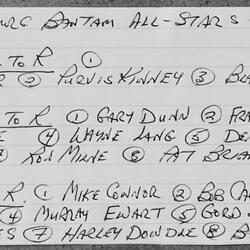 BANTAM ALL-STARS
TO R ①
② PURVIS KINNEY ③
TO R ① GARY DUNN ②
④ WAYNE LANG ⑤
⑦ RON MILNE ⑧ PAT
R. ① MIKE CONNOR ② BOB
④ MURRAY EWART ⑤ GORD
⑦ HARLEY ⑧